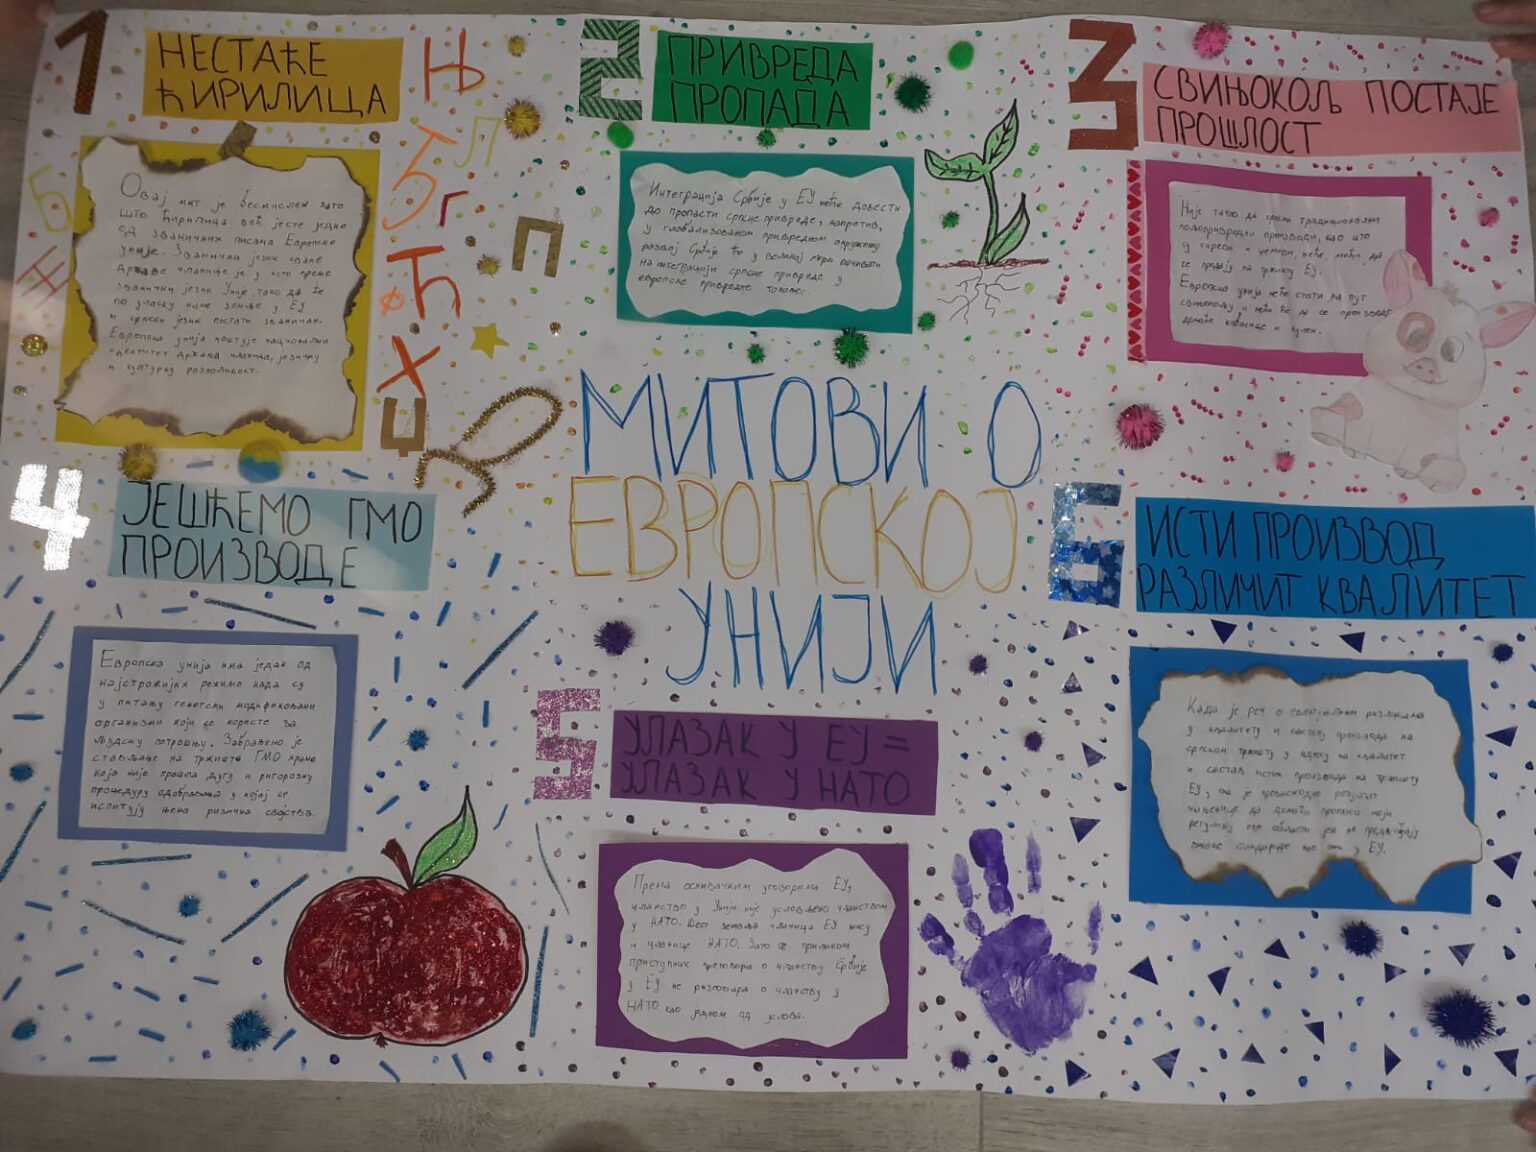 1
НЕСТАЋЕ
ЋИРИЛИЦА
Овај мит је бесмислен зато
што ћирилица већ јесте једно
од званичних писама Европске
уније. Званични језик сваке
државе чланице је у исто време
званични језик Уније тако да ће
по уласку наше земље у ЕУ
и српски језик постати званичан.
Европска унија поштује национални
идентитет држава чланица, језичку
и културну разноликост.
Њ
Л
Ђ
г
Б
П
Ж
Ћ
ф
Х
Џ
2
ПРИВРЕДА
ПРОПАДА
Интеграција Србије у ЕУ неће довести
до пропасти српске привреде, напротив,
у глобализованом привредном окружењу
развој Србије ће у великој мери почивати
на интеграцији српске привреде у
европске привредне токове.
3
СВИЊОКОЉ ПОСТАЈЕ
ПРОШЛОСТ
Није тачно да српски традиционални
пољопривредни производи, као што
су сиреви и џемови, неће моћи да
се продају на тржишту ЕУ.
Европска унија неће стати на пут
свињокољу и моћи ће да се производе
домаће кобасице и кулен.
МИТОВИ О
ЕВРОПСКОЈ
УНИЈИ
4
ЈЕШЋЕМО ГМО
ПРОИЗВОДЕ
Европска унија има један од
најстрожијих режима када су
у питању генетски модификовани
организми који се користе за
људску потрошњу. Забрањено је
стављање на тржиште ГМО хране
која није прошла дугу и ригорозну
процедуру одобравања у којој се
испитују њена ризична својства.
5
УЛАЗАК У ЕУ =
УЛАЗАК У НАТО
Према оснивачким уговорима ЕУ,
чланство у Унији није условљено чланством
у НАТО. Шест земаља чланица ЕУ нису
и чланице НАТО. Зато се приликом
приступних преговора о чланству Србије
у ЕУ не разговара о чланству у
НАТО као једном од услова.
6
ИСТИ ПРОИЗВОД
РАЗЛИЧИТ КВАЛИТЕТ
Када је реч о евентуалним разликама
у квалитету и саставу производа на
српском тржишту у односу на квалитет
и састав истих производа на тржишту
ЕУ, то је превасходно резултат
чињенице да домаћи прописи који
регулишу ове области још не предвиђају
стандарде као они у ЕУ.